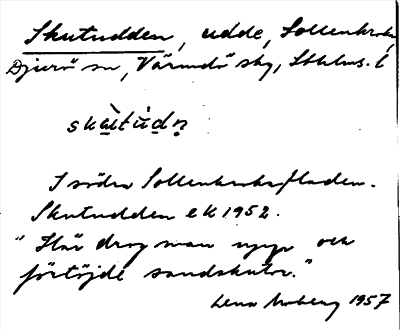 Skutudden, udde, Sollenkroka,
Djurö sn, Värmdö skg, Sthlms. l
skùtùdn̥
I södra Sollenkrokafladen.
Skutudden ek 1952.
"Här drog man upp och
förtöjde sandskutor."
Lena Moberg 1957